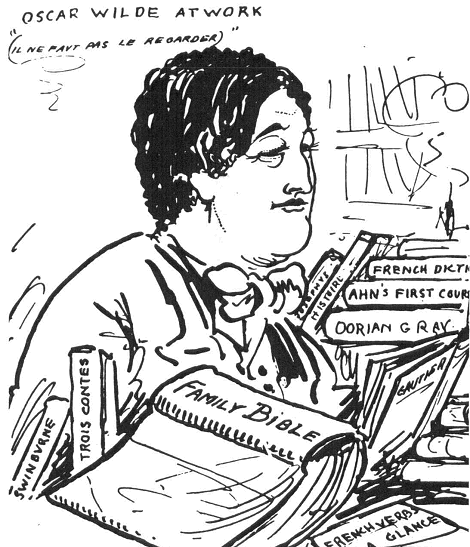 "OSCAR WILDE AT WORK
(IL NE FAUT PAS LE REGARDER)"
JOSEPHUS
HISTOIRE
FRENCH DICTI
AHN'S FIRST COUR
DORIAN GRAY.
GAUTIER
SWINBURNE
TROIS CONTES
FAMILY BIBLE
FRENCH VERBS
A GLANCE